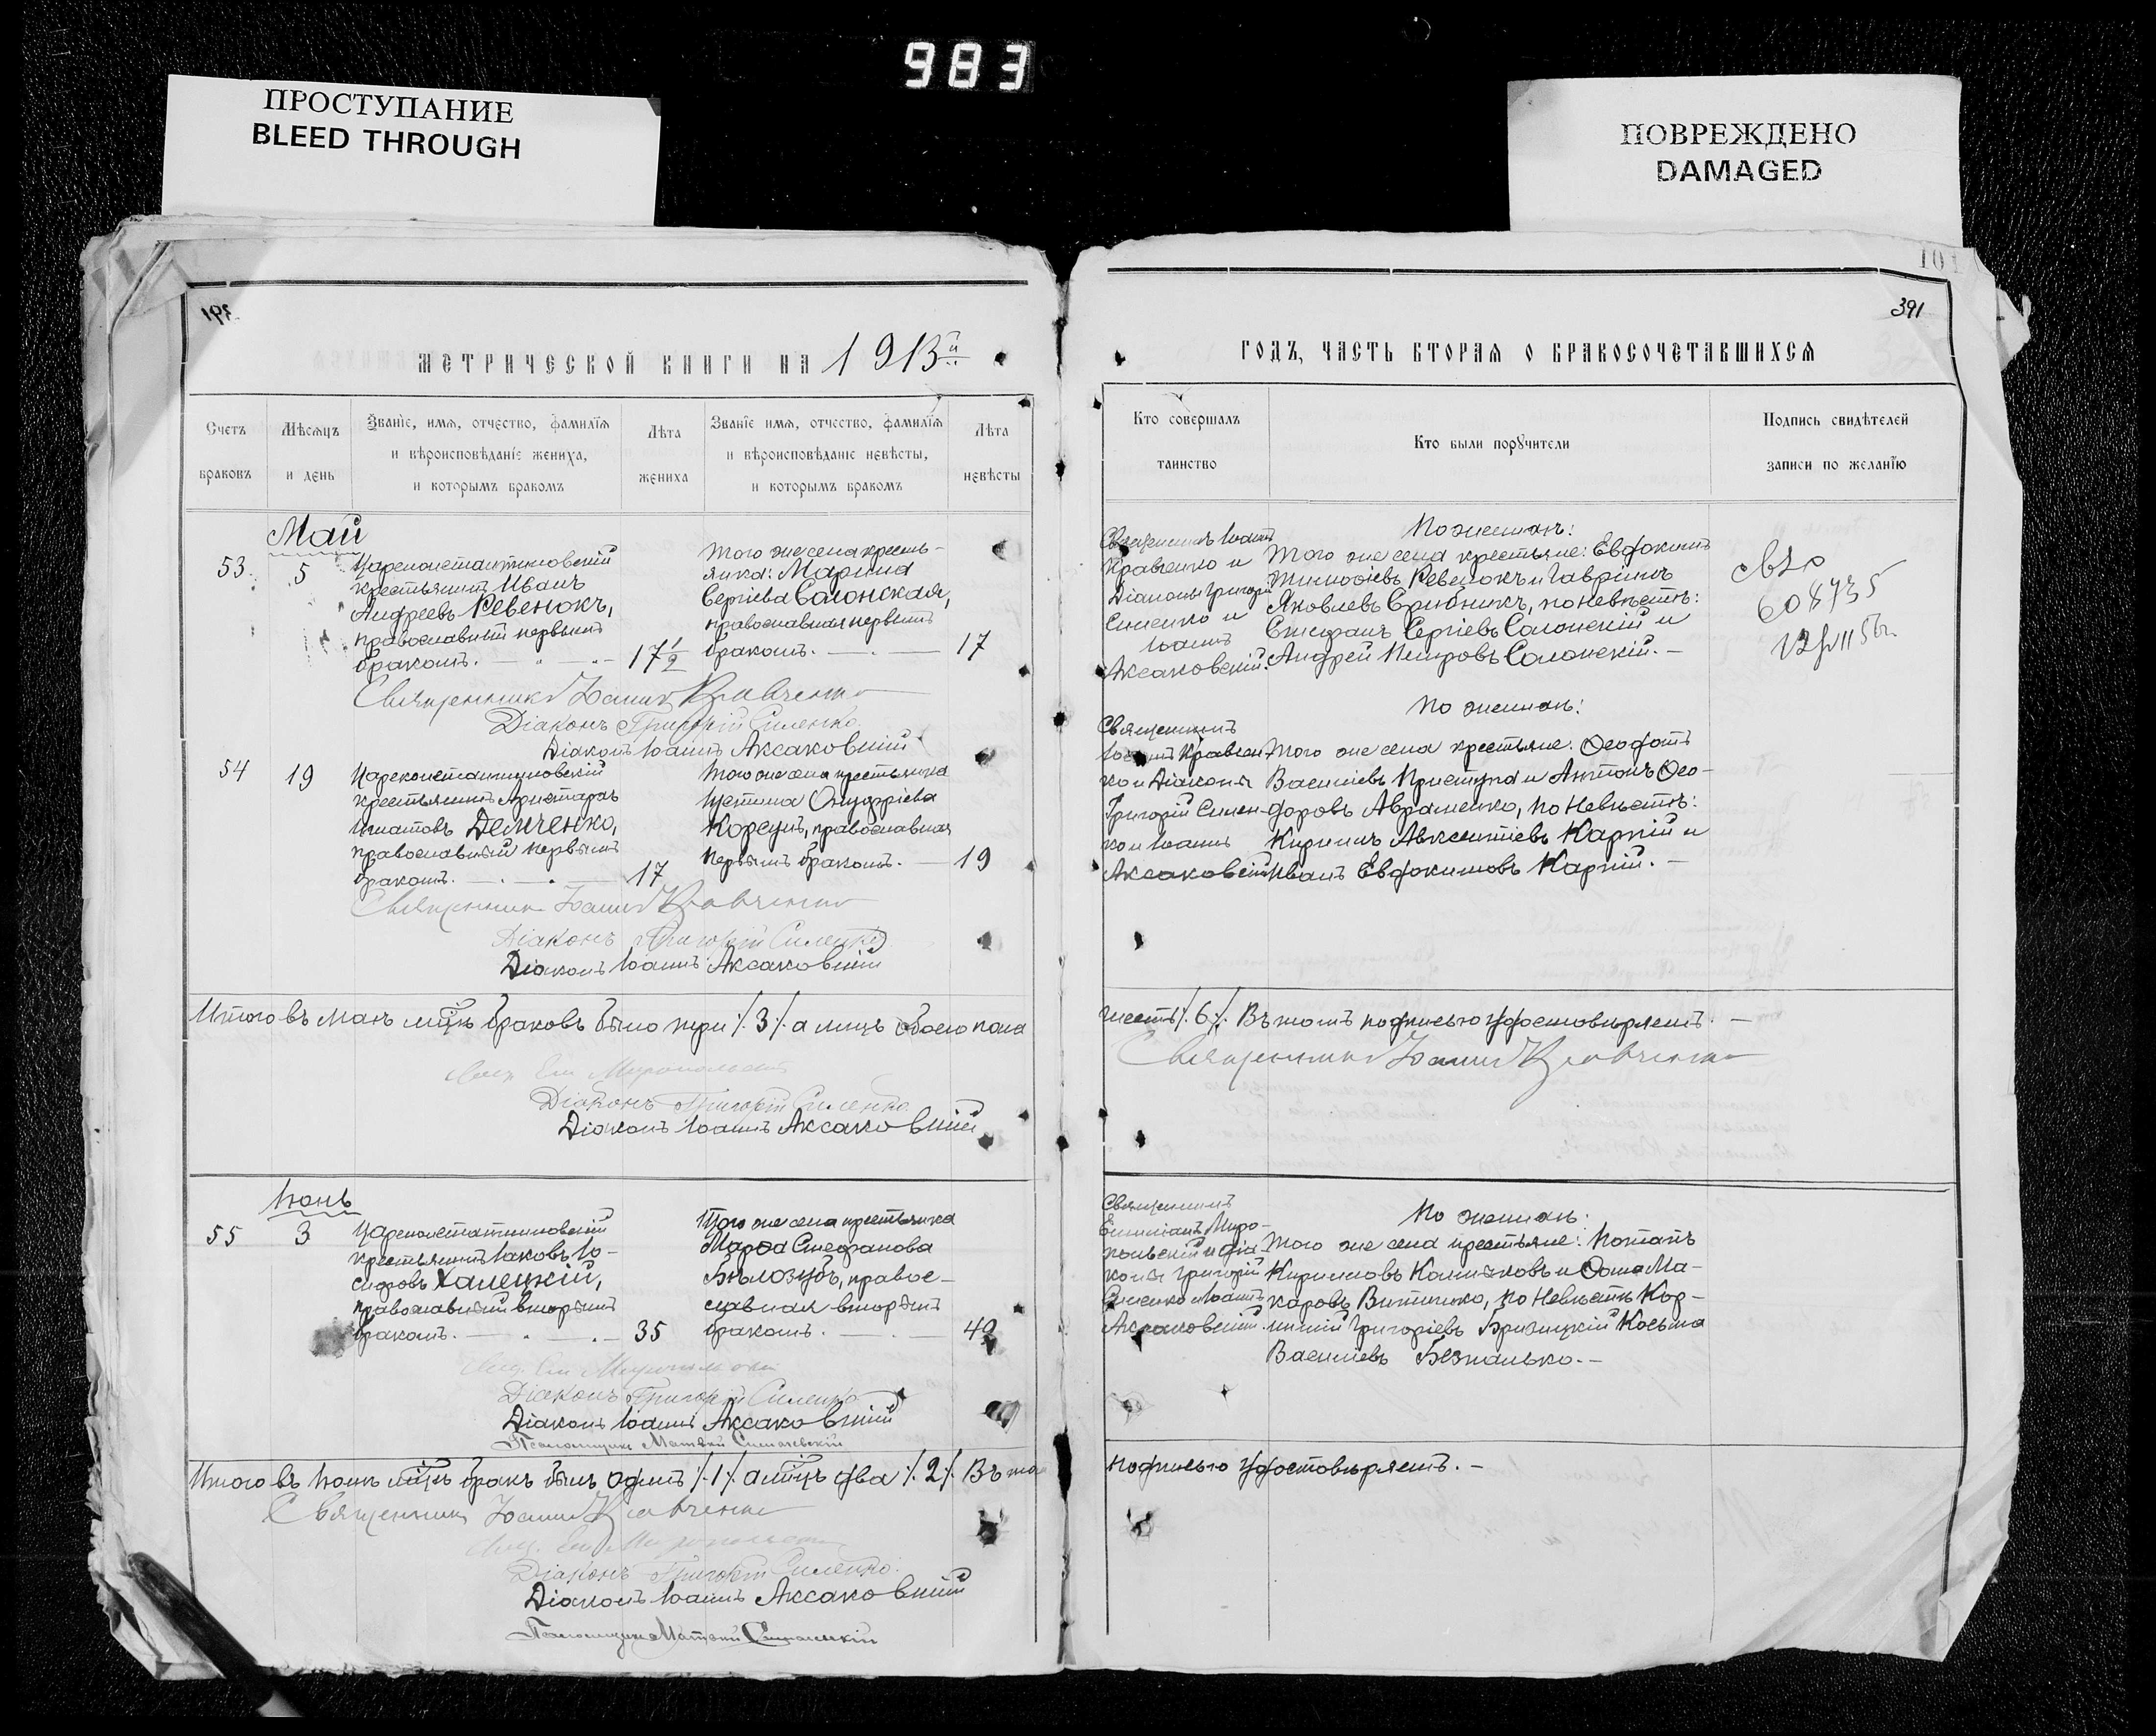 983
ПРОСТУПАНИЕ
BLEED THROUGH
ПОВРЕЖДЕНО
DAMAGED
101
391
МЕТРИЧЕСКОЙ КНИГИ НА 1913й
ГОДЪ, ЧАСТЬ ВТОРАЯ О БРАКОСОЧЕТАВШИХСЯ
Счетъ браковъ
Мѣсяцъ и день
Званіе, имя, отчество, фамилія
и вѣроисповѣданіе жениха,
и которымъ бракомъ
Лѣта жениха
Званіе имя, отчество, фамилія
и вѣроисповѣданіе невѣсты,
и которымъ бракомъ
Лѣта невѣсты
Кто совершалъ
таинство
Кто были поручители
Подпись свидѣтелей
записи по желанію
Май
53.
5
Цареконстантиновскій
крестьянинъ Иванъ
Андреевъ Ревенокъ,
православный первымъ
бракомъ.
17 1/2
Того же села кресть-
янка: Марина
Сергіева Салонская,
православная первымъ
бракомъ.
17
Священникъ Іоаннъ
Кравченко и
Діаконы Григорій
Силенко и
Іоаннъ
Аксаковскій.
По женихѣ:
Того же села крестьяне: Евдокимъ
Тимофѣевъ Ревенокъ и Гавріилъ
Яковлевъ Срибникъ, по невѣстѣ:
Стефанъ Сергіевъ Салонскій и
Андрей Петровъ Салонскій.
608735
Священникъ Іоаннъ Кравченко
Діаконъ Григорій Силенко.
Діаконъ Іоаннъ Аксаковскій
54
19
Цареконстантиновскій
крестьянинъ Аристархъ
Игнатовъ Демченко,
православный первымъ
бракомъ.
17
Того же села крестьянка
Устина Онуфріева
Корсунъ, православная
первымъ бракомъ.
19
Священникъ
Іоаннъ Кравчен-
ко и Діаконы
Григорій Силен-
ко и Іоаннъ
Аксаковскій
По женихѣ:
Того же села крестьяне: Ѳеофанъ
Василіевъ Приступа и Антонъ Ѳео-
доровъ Авраменко, по невѣстѣ:
Кириллъ Авксентіевъ Карпій и
Иванъ Евдокимовъ Карпій.
Священникъ Іоаннъ Кравченко
Діаконъ Григорій Силенко
Діаконъ Іоаннъ Аксаковскій
Итого въ маѣ мцѣ браковъ было три /.3/. а лицъ обоего пола
шесть /.6/. Въ томъ подписью удостовѣряетъ.
Священникъ Іоаннъ Кравченко
Діаконъ Григорій Силенко
Діаконъ Іоаннъ Аксаковскій
Іюнь
55
3
Цареконстантиновскій
крестьянинъ Іаковъ Іо-
сифовъ Халецкій,
православный вторымъ
бракомъ.
35
Того же села крестьянка
Марѳа Стефанова
Бѣлозубъ, правос-
лавная вторымъ
бракомъ.
42
Священникъ
Емиліанъ Миро-
польскій и діа-
коны Григорій
Силенко Іоаннъ
Аксаковскій.
По женихѣ:
Того же села крестьяне: Потапъ
Кирилловъ Калиниковъ и Ѳома Ма-
каровъ Витченко, по невѣстѣ Кор-
нилій Григоріевъ Бризицкій Косьма
Василіевъ Безпалько.
Діаконъ Григорій Силенко
Діаконъ Іоаннъ Аксаковскій
Итого въ Іюнѣ мцѣ бракъ былъ одинъ /.1/. а лицъ два /.2/. Въ томъ
подписью удостовѣряетъ.
Священникъ Іоаннъ Кравченко
Діаконъ Григорій Силенко.
Діаконъ Іоаннъ Аксаковскій